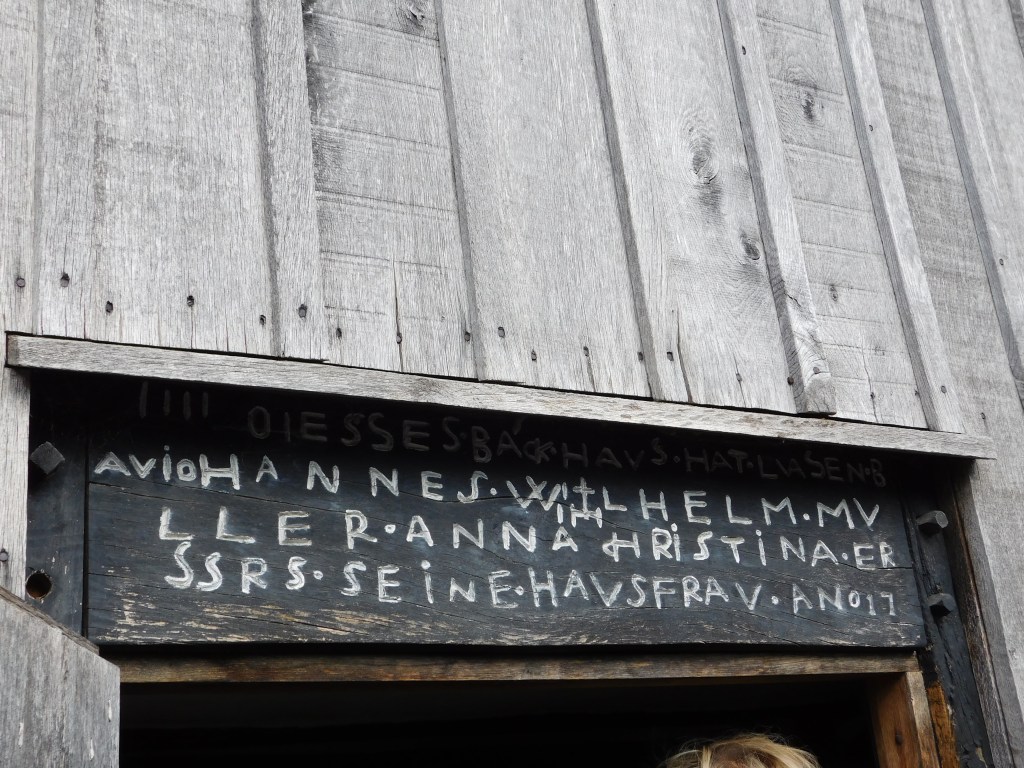 IIII DIESSES·BACKHAVS·HAT·LVASEN·B
AVIOHANNES·WILHELM·MV
LLER·ANNA CHRISTINA·ER
SSRS·SEINE·HAVSFRAV·ANO17